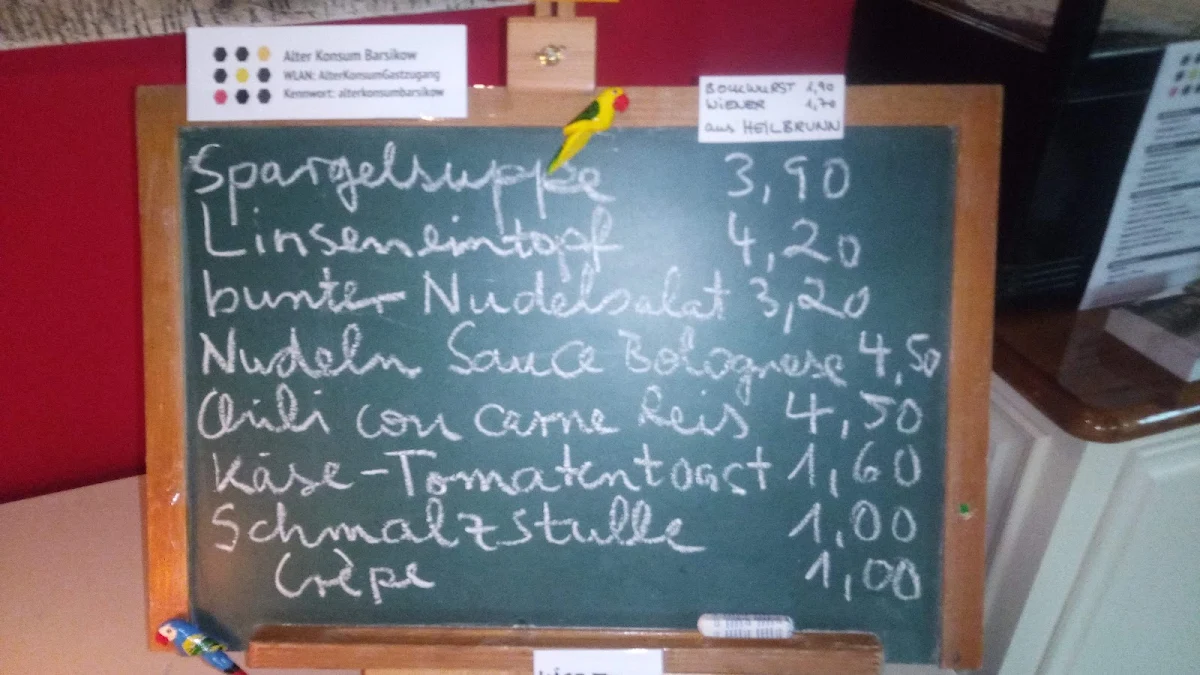 Alter Konsum Barsikow
WLAN: AlterKonsumGastzugang
Kennwort: alterkonsumbarsikow
BOCKWURST 1,90
WIENER 1,70
aus HEILBRUNN
Spargelsuppe 3,90
Linseneintopf 4,20
bunter Nudelsalat 3,20
Nudeln Sauce Bolognese 4,50
Chili con carne Reis 4,50
Käse-Tomatentoast 1,60
Schmalzstulle 1,00
Crèpe 1,00